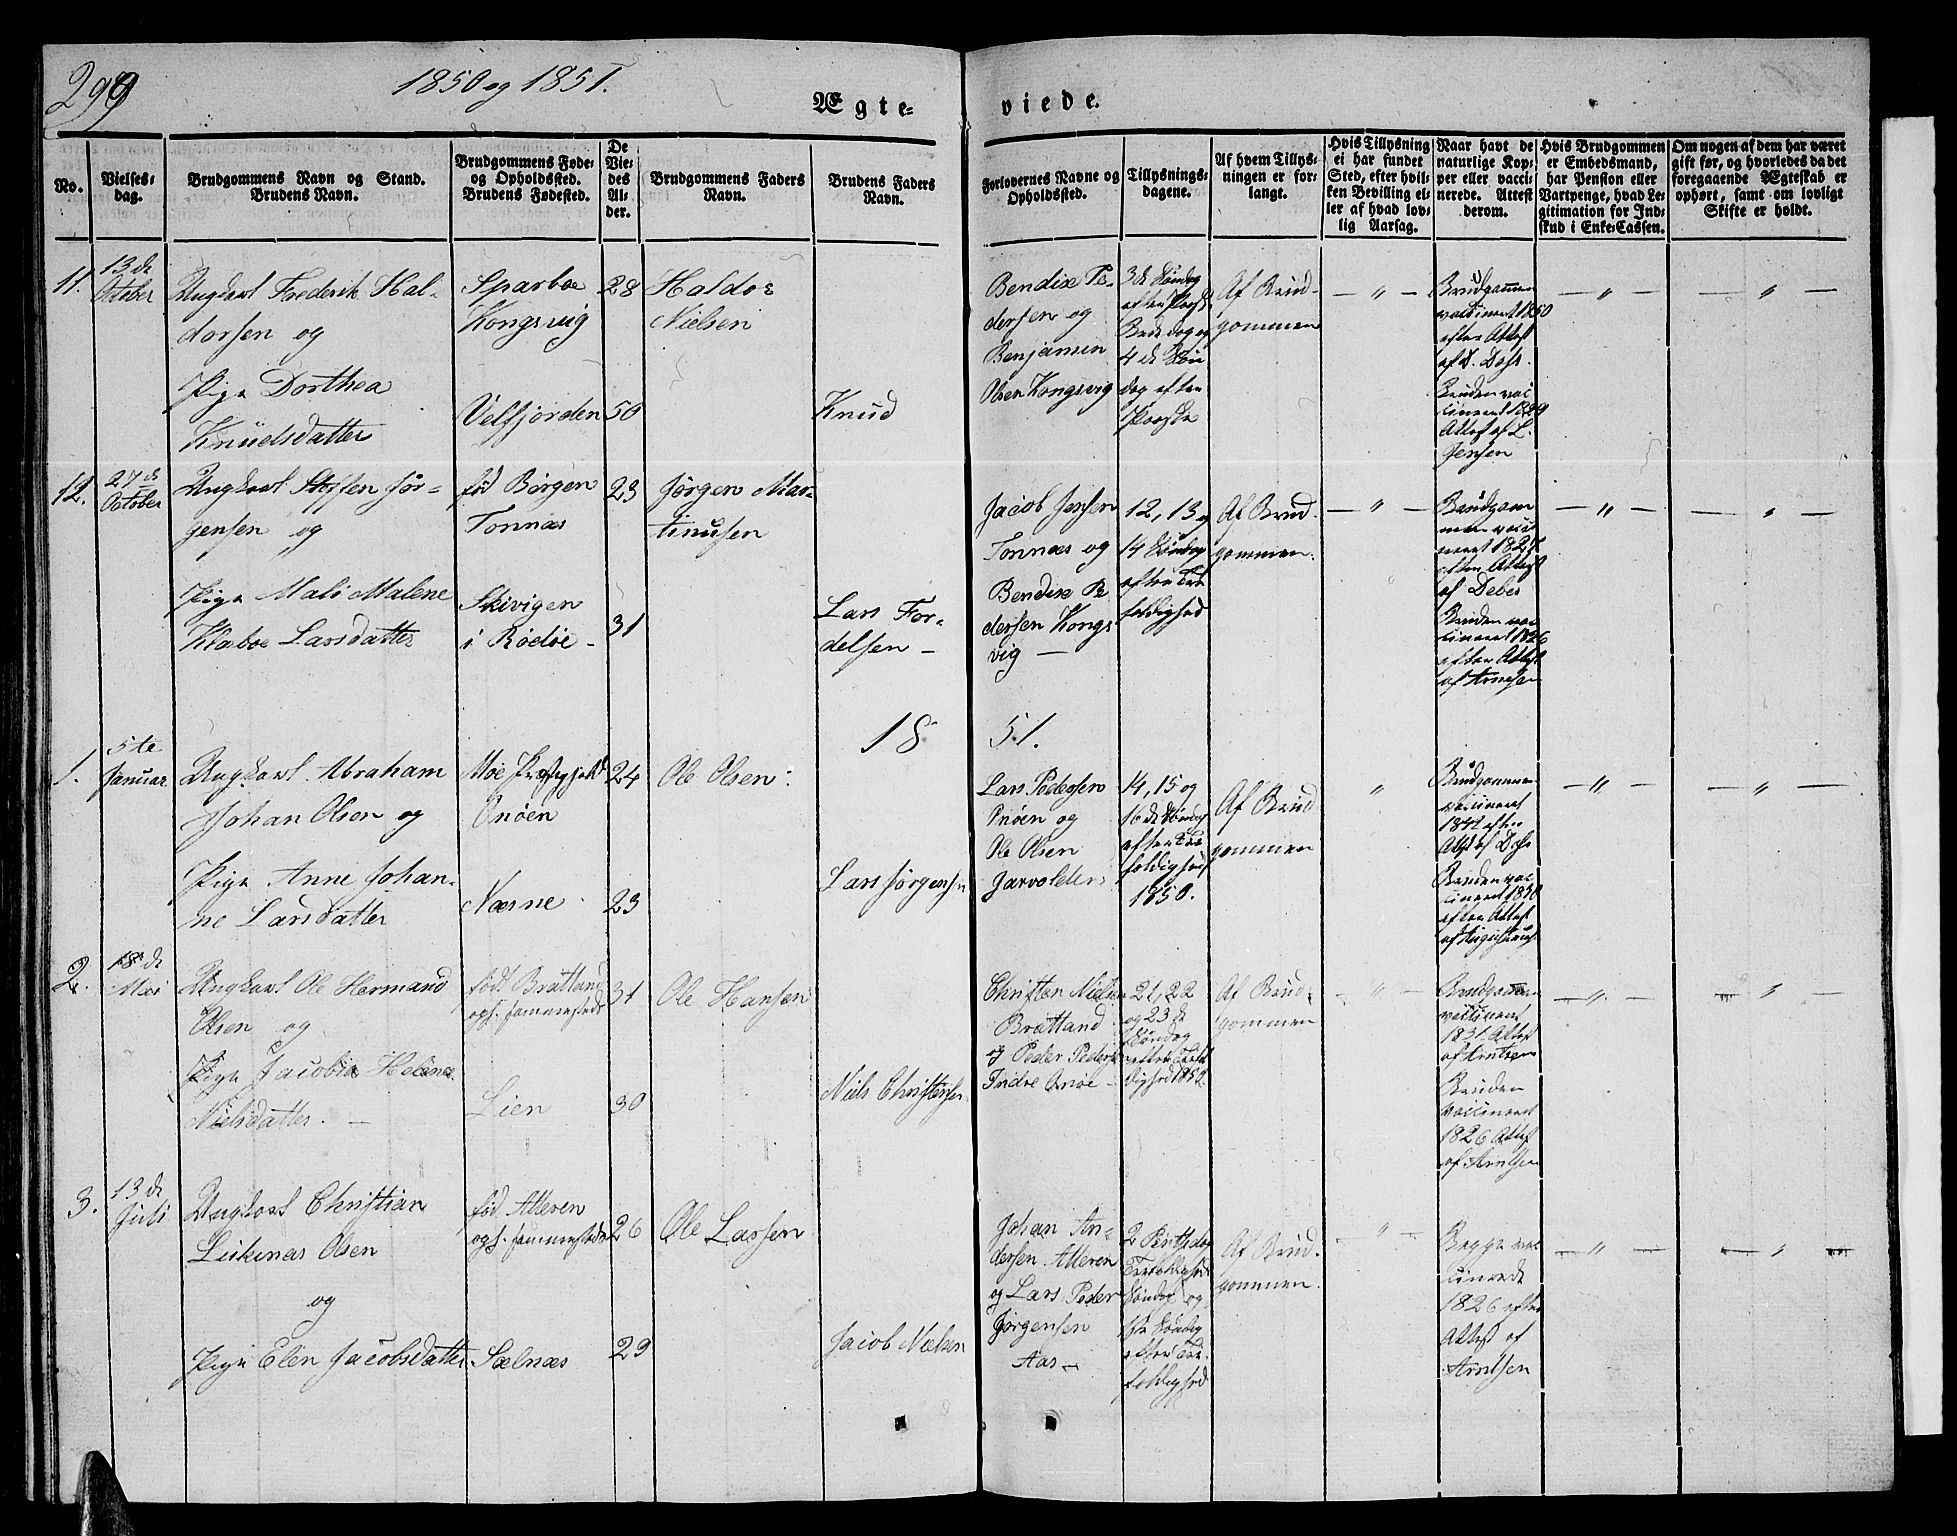 299
1850 og 1851.
Ægte-
viede.
No.
Vielses-
dag.
Brudgommens Navn og Stand.
Brudens Navn.
Brudgommens Føde-
og Opholdssted.
Brudens Fødested.
De
Vie-
des
Al-
der.
Brudgommens Faders
Navn.
Brudens Faders
Navn.
Forlovernes Navne og
Opholdssted.
Tillysnings-
dagene.
Af hvem Tillys-
ningen er for-
langt.
Hvis Tillysning
ei har fundet
Sted, efter hvil-
ken Bevilling el-
ler af hvad lov-
lig Aarsag.
Naar havt de
naturlige Kop-
per eller vacci-
nerede. Attest
derom.
Hvis Brudgommen
er Embedsmand,
har Pension eller
Vartpenge, hvad Le-
gitimation for Ind-
skud i Enke-Cassen.
Om nogen af dem har været
gift før, og hvorledes da det
foregaaende Ægteskab er
ophørt, samt om lovligt
Skifte er holdt.
11.
13de
October
Ungkarl Frederik Hal-
dorsen og
Pige Dorthea
Knudsdatter
Sparboe
Kongsvig
Velfjorden
28
50
Haldor
Nielsen
Knud
Bendix Pe-
dersen og
Benjamin
Olsen Kongsvig
3de Søndag
efter Paaske
4de Søn
dag efter
Paaske
Af Brud-
gommen
Brudgommen
vaccineret 1850
efter Attest
af D. Dahs.
Bruden vac
cineret 1829
Attest af L.
Jensen
12.
27de
October
Ungkarl Steffen Jør-
gensen og
Pige Mali Malene
Klæboe Larsdatter
fød Børgen
Tonnæs
Skivigen
i Rødøe -
23
31
Jørgen Mar-
tinusen
Lars For-
delsen -
Jacob Jensen
Tonnæs og
Bendix Pe
dersen Kongs
vig —
12, 13 og
14 Søndag
efter Tre
foldighed
Af Brud-
gommen.
Brudgom
men vacci
neret 1827
efter Attest
af Debes
Bruden vac
cineret 1826
efter Attest
af Arntsen
18 51.
1.
5te
Januar
Ungkarl Abraham
Johan Olsen og
Pige Anne Johan-
ne Larsdatter
Moe Præstegjeld
Onøen
Næsne
24
23
Ole Olsen
Lars Jørgensen
Lars Pedersen
Onøen og
Ole Olsen
14, 15 og
16de Søndag
efter Tre
foldighed
1850.
Af Brud
gommen
Brudgommen
vaccineret
efter
Attest af Dahs
Bruden vac
cineret 1830
efter Attest
2.
18de
Mai
Ungkarl Ole Hermand
Olsen og
Pige Jacobia Helena
Nielsdatter. —
født Bratland
ops. sammesteds
Lien
31
30
Ole Hansen
Niels Christensen
Christen Nielsen
Bratland
og Peder Pedersen
Indre Onøe -
21, 22
og 23de
Søndag
efter Trefol
dighed 1852.
Af Brud-
gommen
Brudgommen
vaccineret
1831 Attest
af Arntsen
Bruden
vaccineret
1826 Attest
af Arntsen
3.
13de
Juli
Ungkarl Christian
Lukinas Olsen
og
Pige Elen Jacobsdatter
fød. Alteren
ops. sammesteds
Sælnæs
26
29
Ole Larsen
Jacob Nielsen
Johan An-
dersen Alteren
og Lars Peder
Jørgensen
Aas -
2 Pintsdag
Trefoldigheds
Søndag og
1ste Søndag
efter Tre-
foldighed
Af Brud-
gommen.
Begge vac
cinerede
1826 efter
Attest af
Arntsen